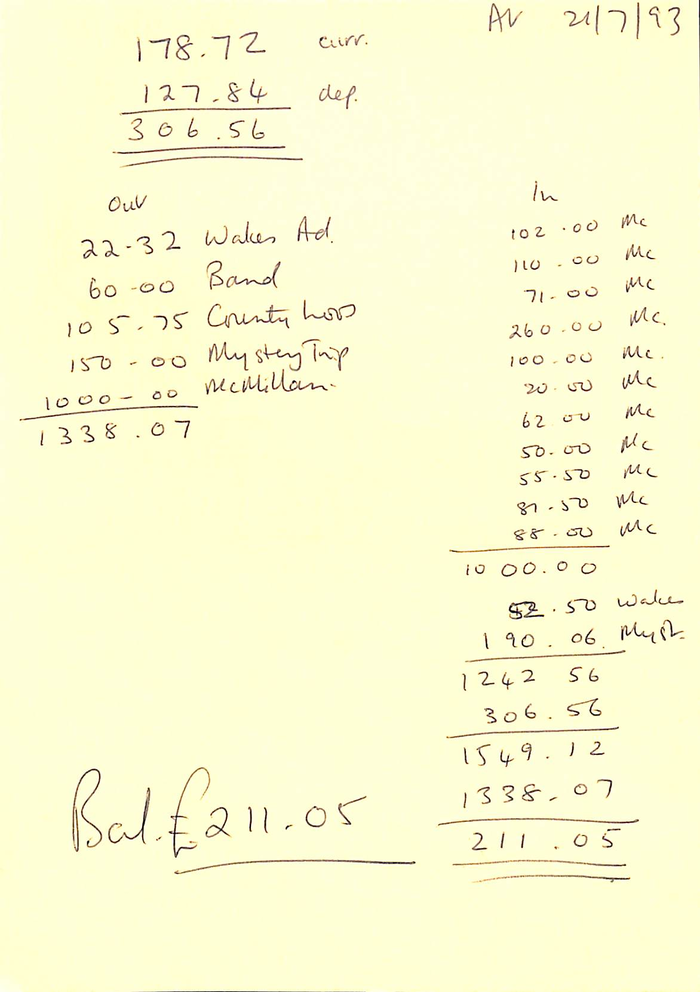 21/7/93
178.72 curr.
127.84 dep.
306.56
Out
22-32 Wakes Ad.
60-00 Band
105.75 County Loos
150-00 Mystery Trip
1000-00 McMillan.
1338.07
In
102.00 Mc
110.00 Mc
71.00 Mc
260.00 Mc.
100.00 Mc.
20.00 Mc
62.00 Mc
50.00 Mc
55.50 Mc
81.50 Mc
88.00 Mc
1000.00
52.50 Wakes
190.06 Myst.
1242 56
306.56
1549.12
1338.07
211.05
Bal. £211.05